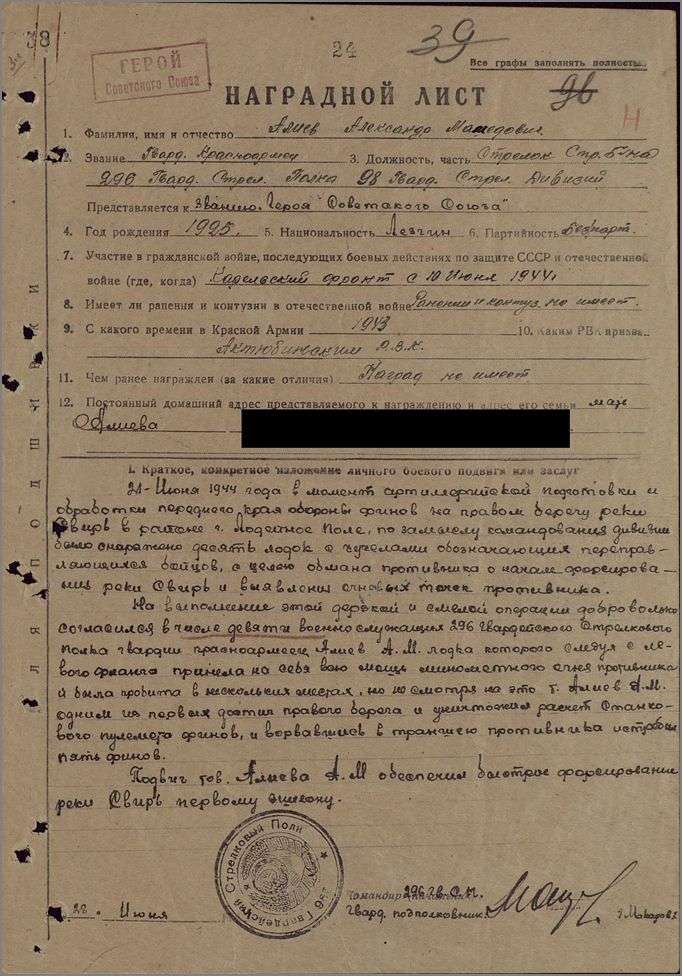 38
24
39
Все графы заполнять полностью
ГЕРОЙ
Советского Союза
НАГРАДНОЙ ЛИСТ
96
Н
1. Фамилия, имя и отчество Алиев Александр Мамедович
2. Звание Гвард. Красноармеец 3. Должность, часть Стрелок Стр. б-на
296 Гвард. Стрел. Полка 98 Гвард. Стрел. Дивизии
Представляется к званию "Героя Советского Союза"
4. Год рождения 1925. 5. Национальность Лезгин 6. Партийность Безпарт.
7. Участие в гражданской войне, последующих боевых действиях по защите СССР и отечественной
войне (где, когда) Карельский фронт с 10 Июня 1944г
8. Имеет ли ранения и контузии в отечественной войне Ранений и контуз. не имеет.
9. С какого времени в Красной Армии 1943 10. Каким РВК призван
Актюбинским О.В.К.
11. Чем ранее награжден (за какие отличия) Наград не имеет
12. Постоянный домашний адрес представляемого к награждению и адрес его семьи мать
Алиева
I. Краткое, конкретное изложение личного боевого подвига или заслуг
21-Июня 1944 года в момент артиллерийской подготовки и
обработки переднего края обороны финов на правом берегу реки
Свирь в районе г. Лодейное Поле, по замыслу командования дивизии
было снаряжено десять лодок с чучелами обозначающих переправ-
ляющийся бойцов, с целью обмана противника о начале форсирова-
ния реки Свирь и выявления огневых точек противника.
На выполнение этой дерзкой и смелой операции добровольно
согласился в числе девяти военнослужащих 296 Гвардейского Стрелкового
Полка гвардии красноармеец Алиев А.М. лодка которого следуя с ле-
вого фланга приняла на себя всю мощь минометного огня противника
и была пробита в нескольких местах, но не смотря на это т. Алиев А.М.
одним из первых достиг правого берега и уничтожил расчет Станко-
вого пулемета финов, и ворвавшись в траншею противника истребил
пять финов.
Подвиг тов. Алиева А.М обеспечил быстрое форсирование
реки Свирь первому эшелону.
296 Гвардейский Стрелковый Полк
Командир 296 Гв.С.П.
Гвард. подполковник
/Макаров/
28 Июня
ДЛЯ ПОДШИВКИ